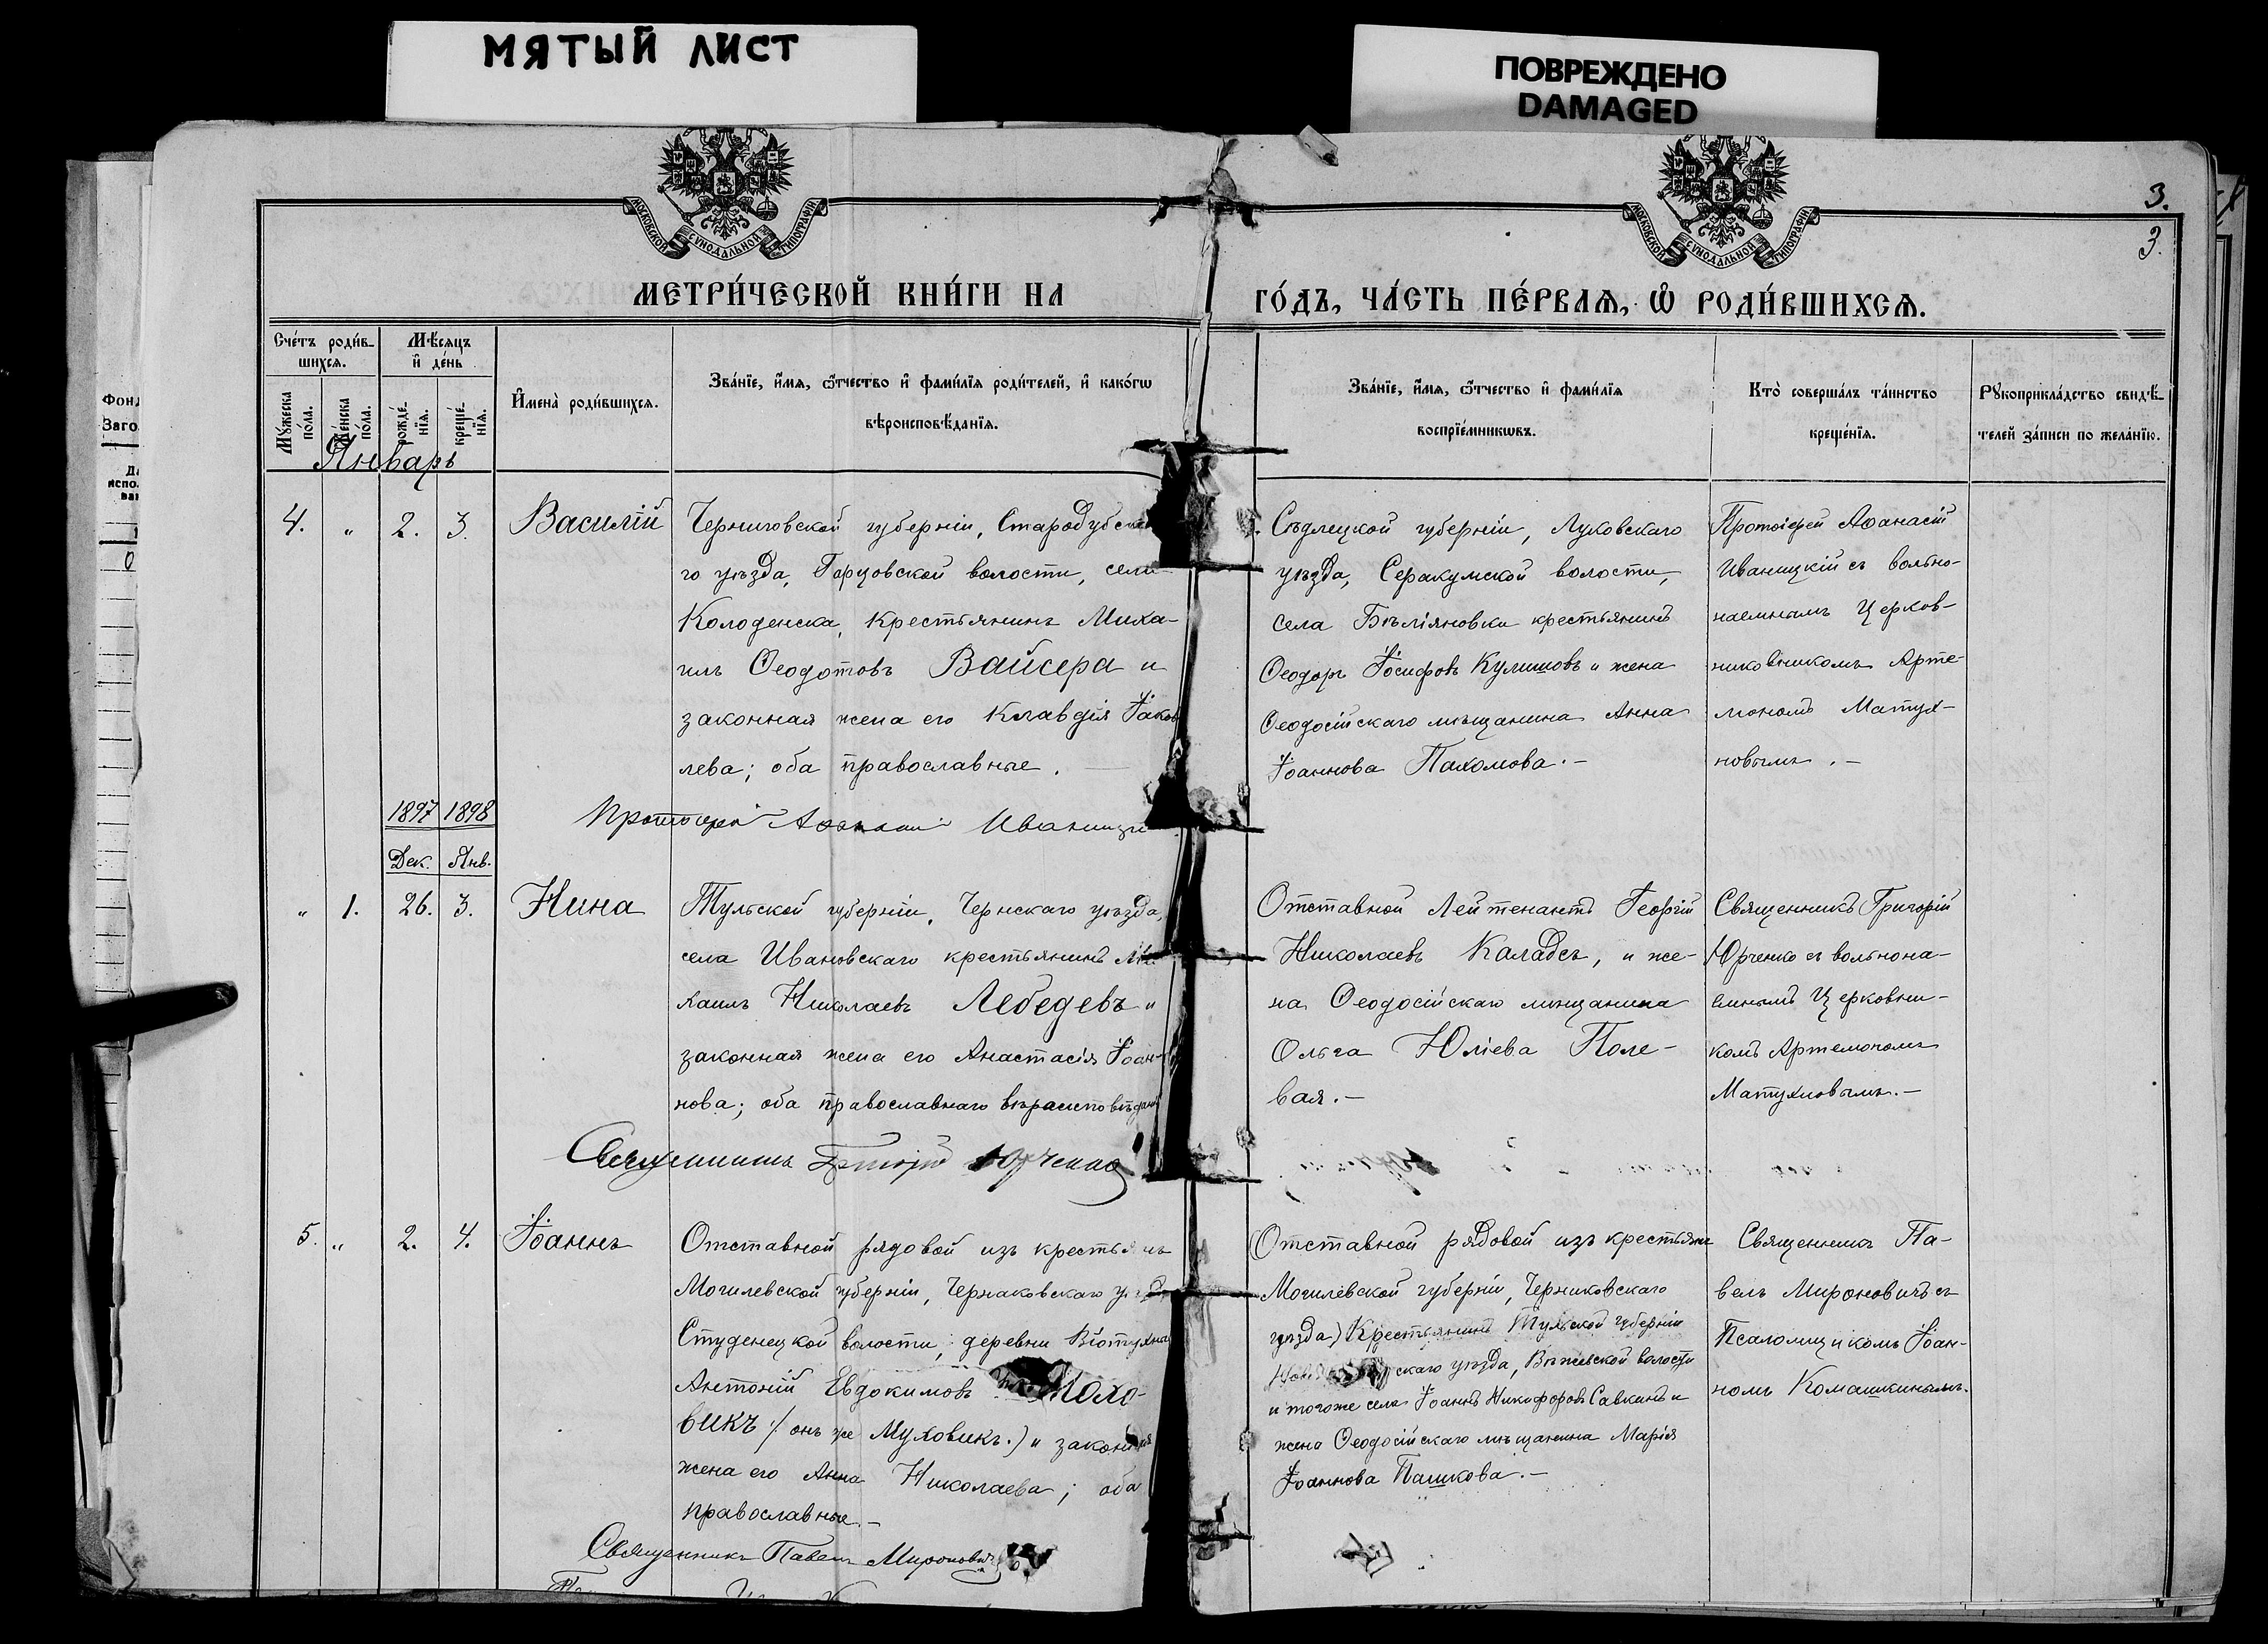 МЯТЫЙ ЛИСТ
ПОВРЕЖДЕНО
DAMAGED
МОСКОВСКОЙ СУНОДАЛЬНОЙ ТИПОГРАФІИ
МОСКОВСКОЙ СУНОДАЛЬНОЙ ТИПОГРАФІИ
3.
3.
МЕТРИ́ЧЕСКОЙ КНИ́ГИ НА
ГО́ДЪ, ЧА́СТЬ ПЕ́РВАѦ, Ѽ РОДИ́ВШИХСѦ.
Сче́тъ роди́в-
шихсѧ.
Му́жеска
по́ла.
Же́нска
по́ла.
Мѣ́сяцъ
и҆ де́нь
рожде́-
нїѧ.
креще́-
нїѧ.
И҆мена̀ роди́вшихсѧ.
Зва́нїе, и҆́мѧ, ѻ҆́тчество и҆ фами́лїѧ роди́телей, и҆ како́гѡ
вѣроисповѣ́данїѧ.
Зва́нїе, и҆́мѧ, ѻ҆́тчество и҆ фами́лїѧ
воспрїе́мникѡвъ.
Кто̀ соверша́лъ та́инство
креще́нїѧ.
Рꙋкоприкла́дство свидѣ́-
телей за́писи по жела́нїю.
Январь
4. " 2. 3. Василій
Черниговской губерніи, Стародубска
го уѣзда, Гарцовской волости, села
Колоденска, крестьянинъ Миха-
илъ Ѳеодотовъ Вайсера и
законная жена его Клавдія Іаков
лева; оба православные.
Сѣдлецкой губерніи, Луковскаго
уѣзда, Серакумской волости,
села Бѣліяновки крестьянинъ
Ѳеодоръ Іосифовъ Кулишовъ и жена
Ѳеодосійскаго мѣщанина Анна
Іоаннова Пахомова.—
Протоіерей Аѳанасій
Иваницкій съ вольно-
наемнымъ Церков-
никовникомъ Арте-
мономъ Матух-
новымъ.—
Протоіерей Аѳанасій Иваницкі
1897 1898
Дек. Янв.
" 1. 26. 3. Нина
Тульской губерніи, Чернскаго уѣзда,
села Ивановскаго крестьянинъ Ми-
хаилъ Николаевъ Лебедевъ и
законная жена его Анастасія Іоан-
нова; оба православнаго вѣраисповѣдані
Отставной Лейтенантъ Георгій
Николаевъ Каладсъ, и же-
на Ѳеодосійскаго мѣщанина
Ольга Юліева Поле-
вая.—
Священникъ Григорій
Юрченко съ вольнона-
емнымъ Церковни-
комъ Артемономъ
Матухновымъ.—
Священникъ Григорій Юрченко
5. " 2. 4. Іоаннъ
Отставной рядовой изъ крестьянъ
Могилевской губерніи, Чериковскаго уѣзда
Студенецкой волости, деревни
Антоній Евдокимовъ Молo-
викъ (онъ же Муховикъ.) и законная
жена его Анна Николаева; оба
православные.—
(Отставной рядовой изъ крестьянъ
Могилевской губерніи, Чериковскаго
уѣзда) Крестьянинъ Тульской губерніи
скаго уѣзда, волости
и тогоже села Іоаннъ Никифоровъ Савкинъ и
жена Ѳеодосійскаго мѣщанина Марія
Іоаннова Пашкова.—
Священникъ Па-
велъ Мироновичъ съ
Псаломщикомъ Іоан-
номъ Комашкинымъ.
Священникъ Павелъ Мироновичъ